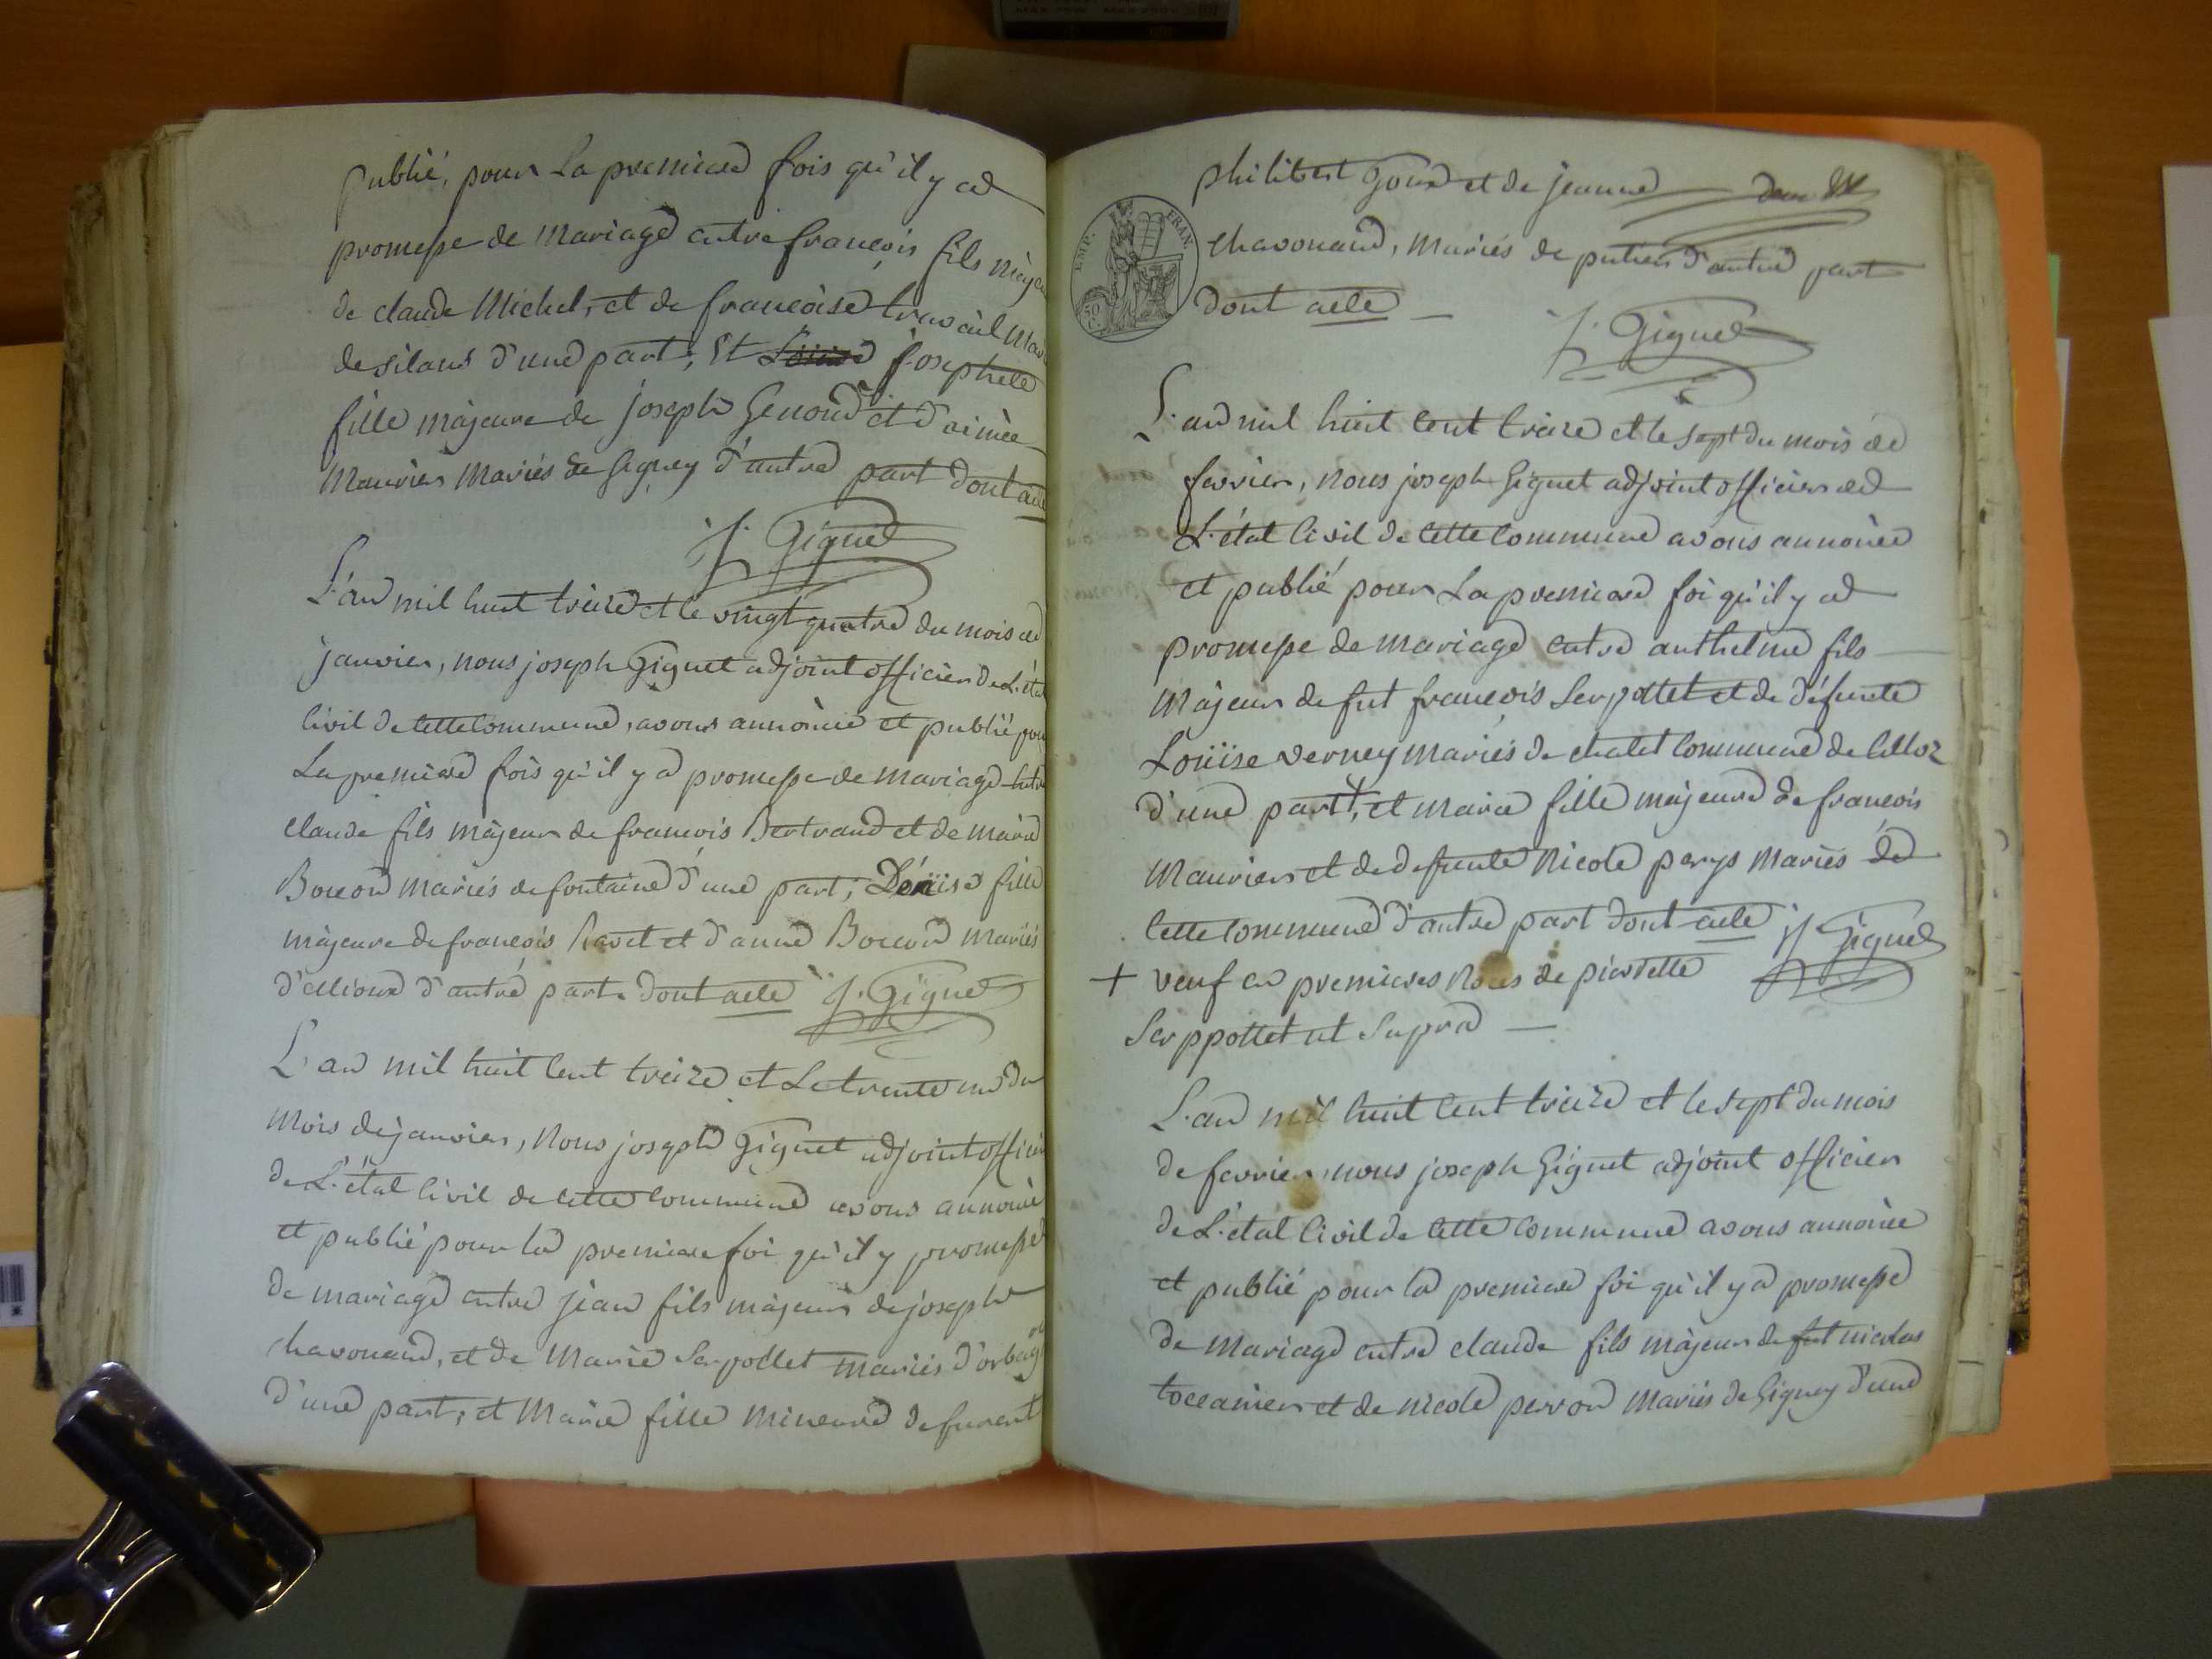 publié, pour La premiere fois qu'il y a
promesse de Mariage entre françois fils májeur
de claude Michel, et de francoise travail
de silans d'une part; Et josephete
fille májeure de joseph Genoud et d'aimée
Maurier Mariés de Gigney d'autre part dont acte
J. Giguet
L'an mil huit treize et le vingt quatre du mois de
janvier, nous joseph Giguet adjoint officier de L'état
Civil de Cette Commune, avons annoncé et publié pour
La premiere fois qu'il y a promesse de mariage Entre
claude fils májeur de françois Bertrand et de marie
Boccon mariés de fontaine d'une part; Déniise fille
májeure de françois Ravet et d'anne Boccon Mariés
d'allioux d'autre part. dont acte J. Giguet
L'an mil huit Cent treize et Le trente un du
Mois de janvier, Nous joseph Giguet adjoint officier
de L'état Civil de Cette Commune avons annoncé
et publié pour la premiere foi qu'il y promesse
de mariage entre jean fils májeur de joseph
chavouand, et de Marie Serpollet mariés d'orbag
d'une part; et Marie fille Mineure de
philibert Goux et de jeanne
EMP. FRAN.
50 C.
Chavouand, Mariés de d'autre part
dont acte
J. Giguet
L'an mil huit Cent treize et le sept du mois de
fevrier, Nous joseph Giguet adjoint officier de
L'état Civil de Cette Commune avons annoncée
et publié pour La premiere foi qu'il y a
promesse de mariage entre anthelme fils
Májeur de fut françois Serpollet et de défunte
Louise verney mariés de chalet Commune de
d'une part +, et marie fille májeure de françois
Maurier et de defunte Nicole perys Mariés de
Cette Commune d'autre part dont acte J. Giguet
+ veuf en premieres Noces de pierrette
Serppollet ut Supra
L'an mil huit Cent treize et le sept du mois
de fevrier nous joseph Giguet adjoint officier
de L'état Civil de Cette Commune avons annoncée
et publié pour la premiere foi qu'il y a promesse
de Mariage entre claude fils májeur de fut nicolas
toccanier et de nicole perron Mariés de Gigney d'une